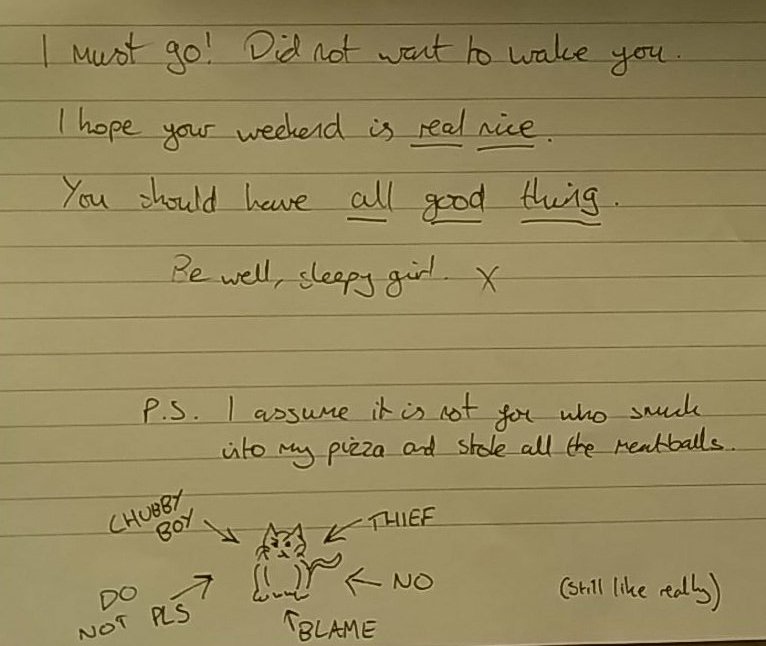 I must go! Did not want to wake you.
I hope your weekend is real nice.
You should have all good thing.
Be well, sleepy girl. X
P.S. I assume it is not you who snuck
into my pizza and stole all the meatballs.
CHUBBY
BOY
THIEF
DO
NOT PLS
NO
BLAME
(still like really)